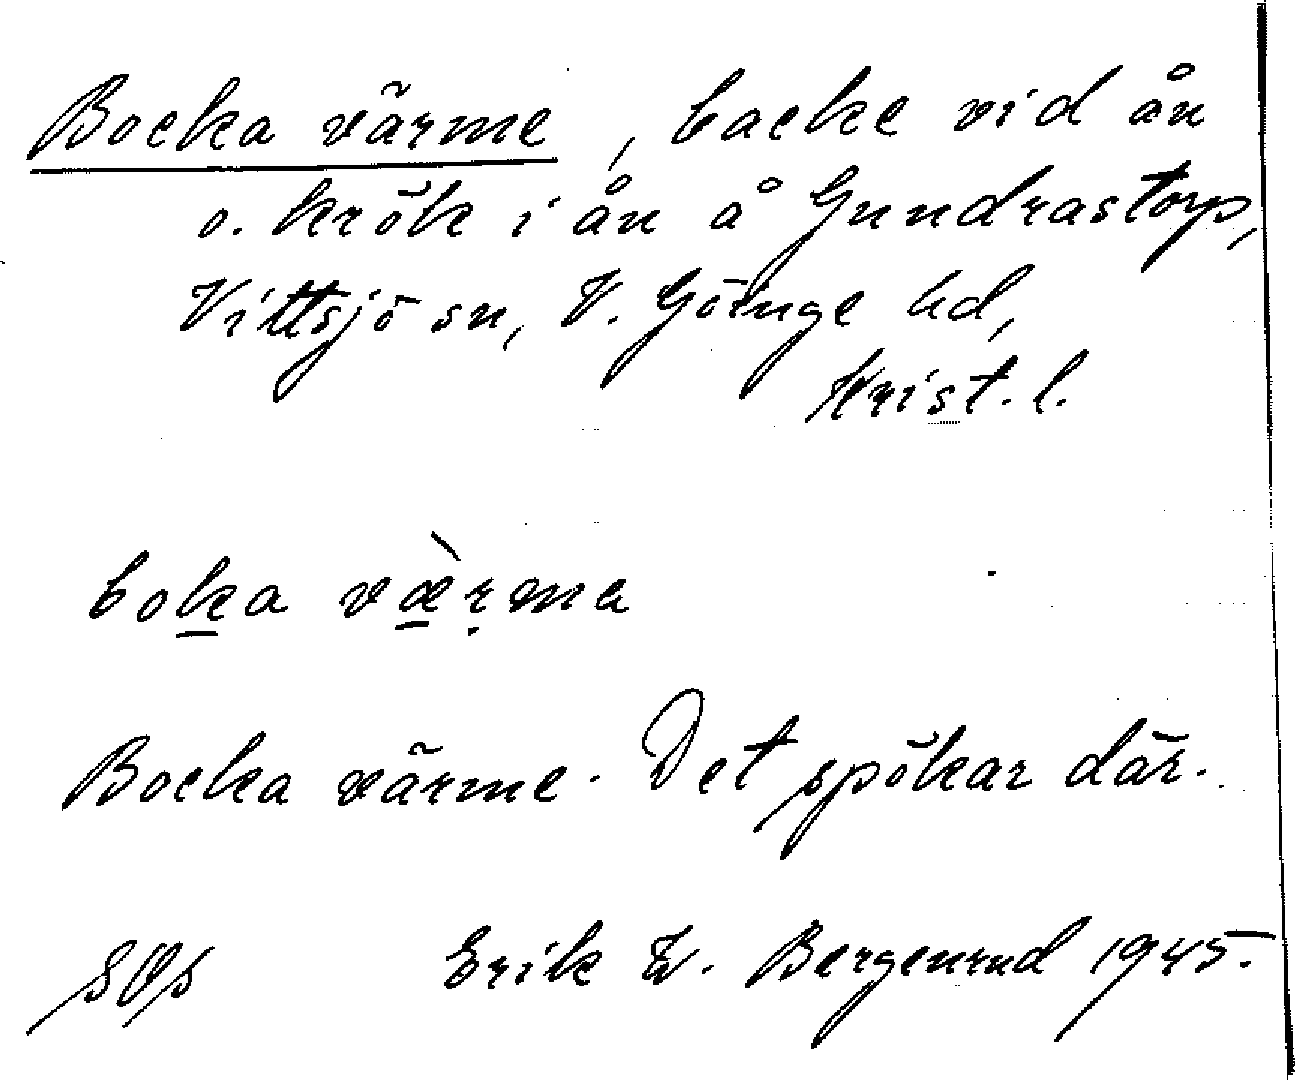 Bocka värme, backe vid ån
o. krök i ån å Gundrastorp,
Vittsjö sn, V. Göinge hd,
Krist. l.
boka væ̀rma
Bocka värme. Det spökar där.
SOS Erik W. Bergenrud 1945.